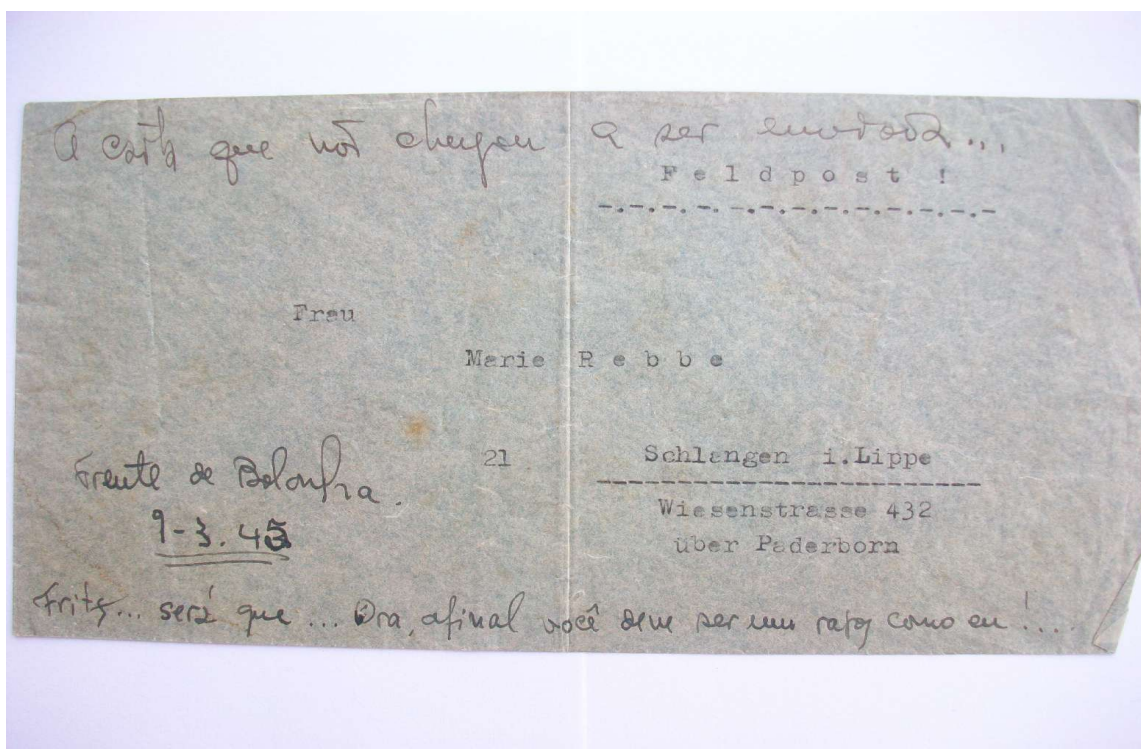 A carta que não chegou a ser enviada...
Feldpost !
-.-.-.-.-.-.-.-.-.-.-.-.-
Frau
Marie Rebbe
21 Schlangen i.Lippe
Wiesenstrasse 432
über Paderborn
Frente de Bolonha.
9-3.45
Fritz... será que ... Ora, afinal você deve ser um rapaz como eu !....